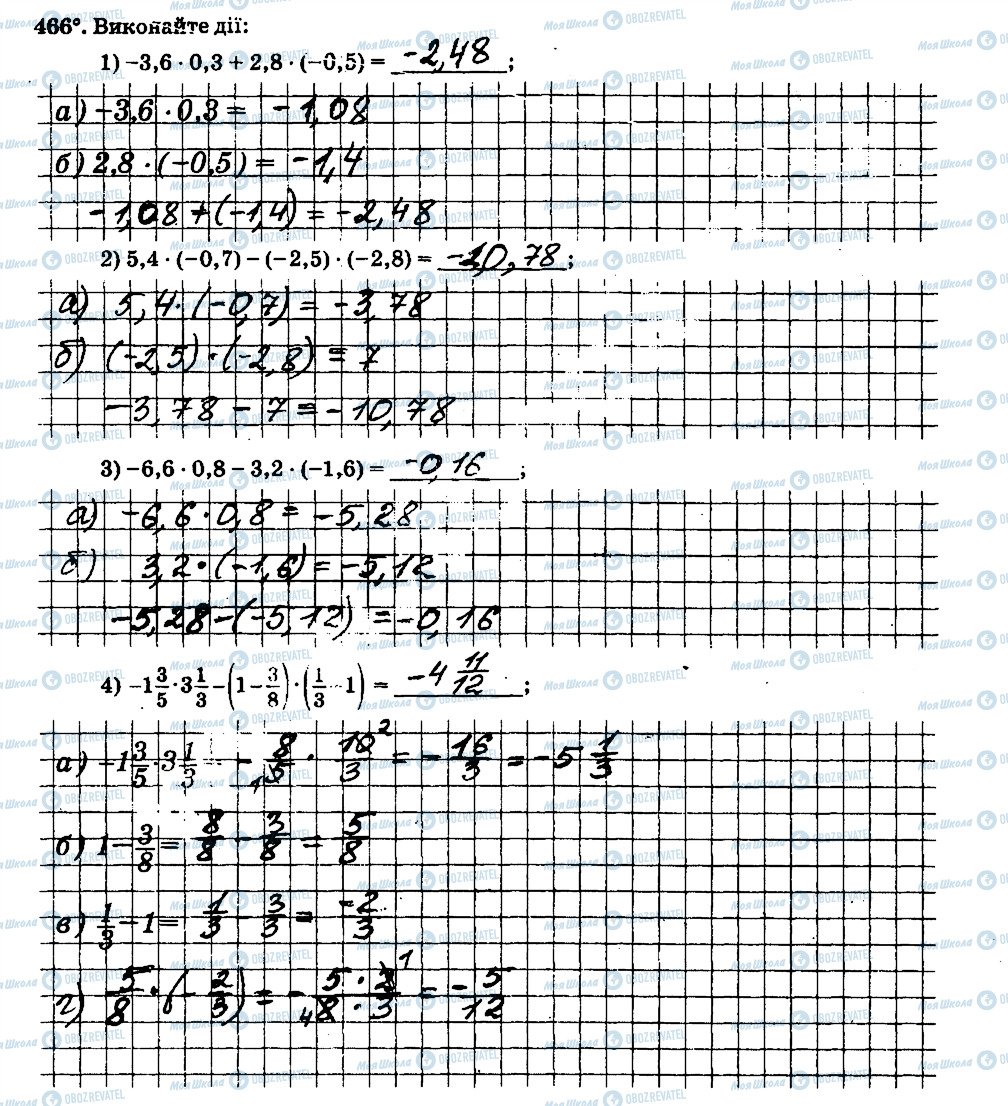 466°. Виконайте дії:
1) –3,6 · 0,3 + 2,8 · (–0,5) = -2,48;
а) –3,6 · 0,3 = -1,08
б) 2,8 · (–0,5) = -1,4
-1,08 + (-1,4) = -2,48
2) 5,4 · (–0,7) – (–2,5) · (–2,8) = -10,78;
а) 5,4 · (-0,7) = -3,78
б) (-2,5) · (-2,8) = 7
-3,78 - 7 = -10,78
3) –6,6 · 0,8 – 3,2 · (–1,6) = -0,16;
а) -6,6 · 0,8 = -5,28
б) 3,2 · (-1,6) = -5,12
-5,28 - (-5,12) = -0,16
4) –1 3/5 · 3 1/3 – (1 – 3/8) · (1/3 – 1) = -4 11/12;
а) –1 3/5 · 3 1/3 - 8/5 · 10/3 = - 16/3 = -5 1/3
б) 1 – 3/8 = 8/8 - 3/8 = 5/8
в) 1/3 – 1 = 1/3 - 3/3 = -2/3
г) 5/8 · (- 2/3) = - 5 · 2/8 · 3 = - 5/12
Моя Школа OBOZREVATEL